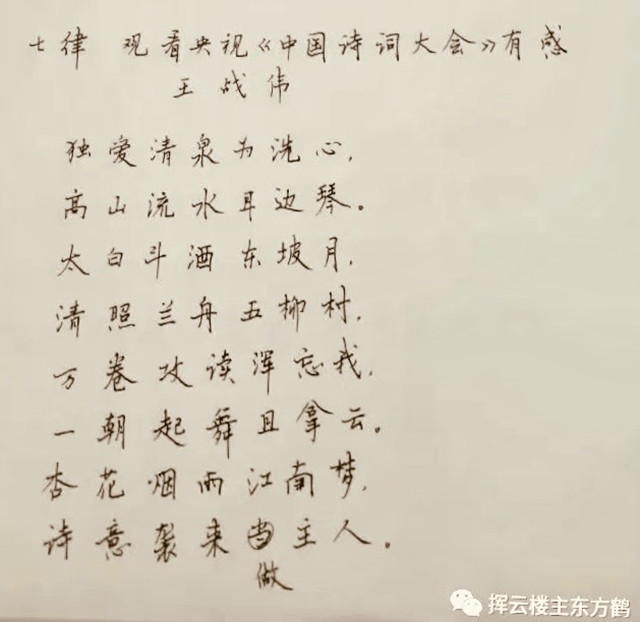 七律 观看央视《中国诗词大会》有感
王战伟
独爱清泉为洗心,
高山流水耳边琴。
太白斗酒东坡月,
清照兰舟五柳村,
万卷攻读浑忘我,
一朝起舞且拿云。
杏花烟雨江南梦,
诗意袭来当主人。
做
挥云楼主东方鹤